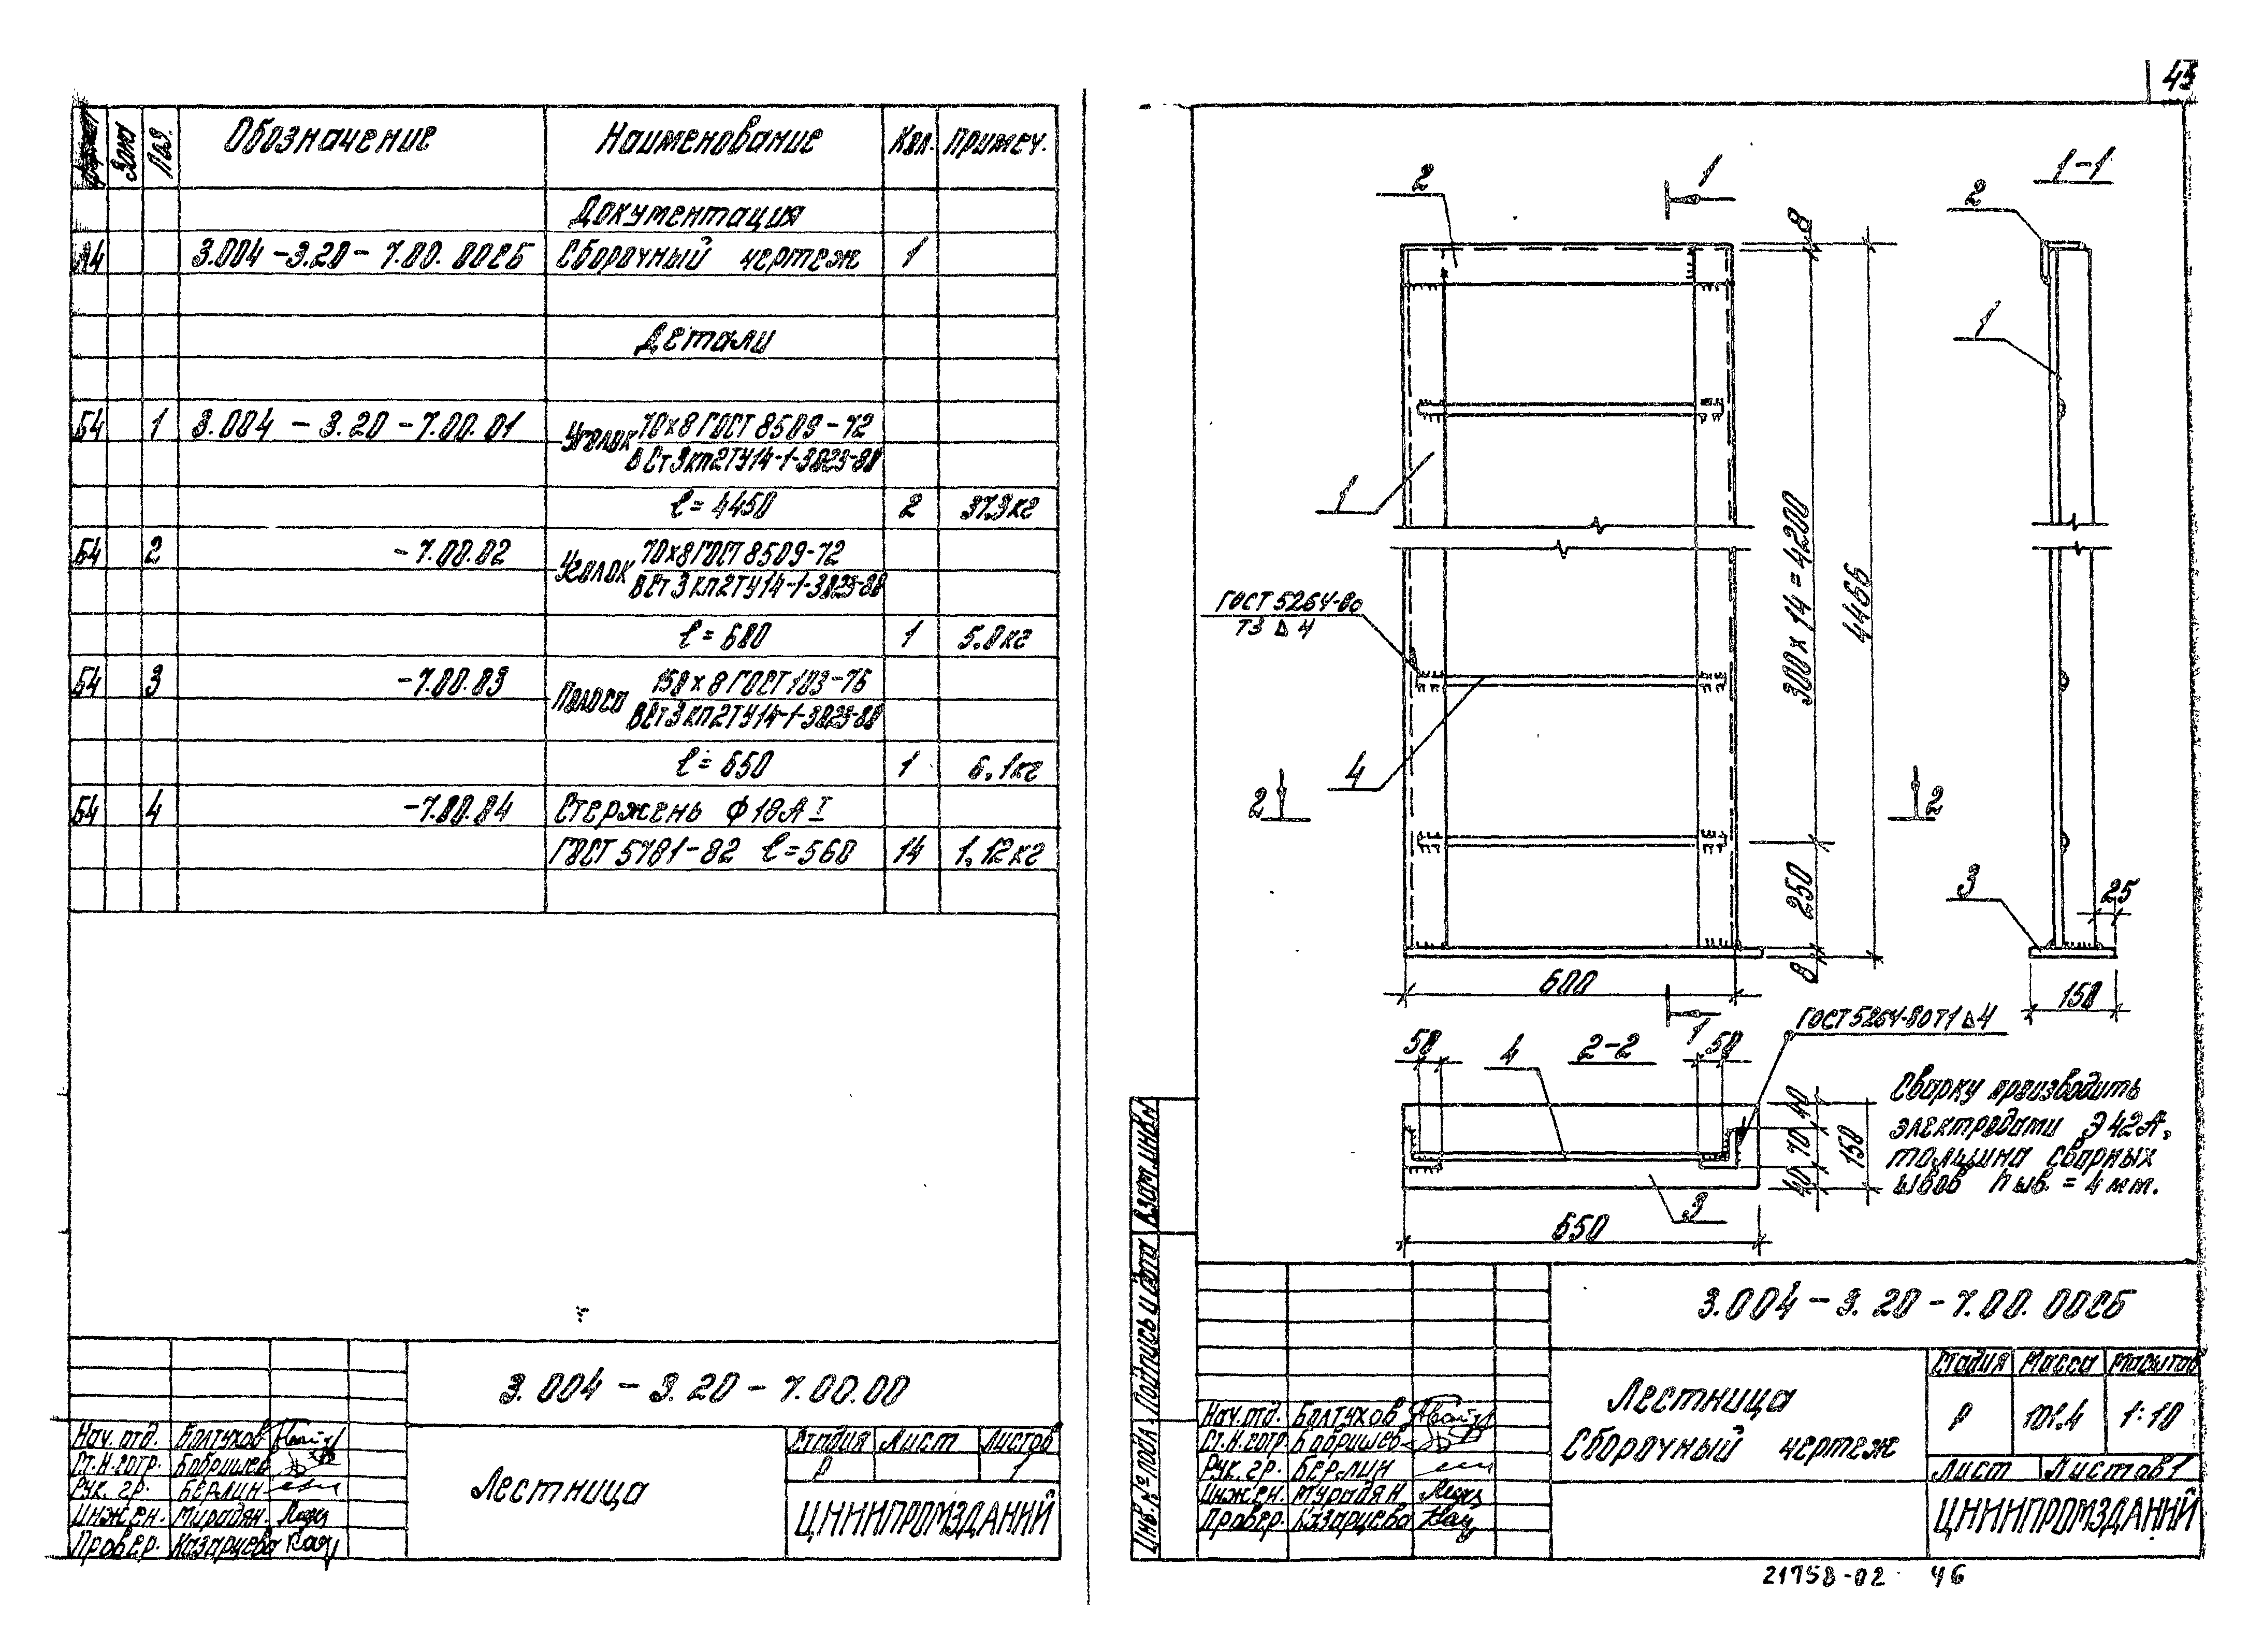 Формат Зона Поз. Обозначение Наименование Кол. Примеч.
Документация
А4 3.004 - 3.20 - 7.00.00СБ Сборочный чертеж 1
Детали
Б4 1 3.004 - 3.20 - 7.00.01 Уголок 70×8 ГОСТ 8509-72
ВСт3кп2ТУ14-1-3023-80
ℓ= 4450 2 37.3кг
Б4 2 -7.00.02 Уголок 70×8 ГОСТ 8509-72
ВСт3кп2ТУ14-1-3023-80
ℓ= 680 1 5.0кг
Б4 3 -7.00.03 Полоса 150×8 ГОСТ 103-76
ВСт3кп2ТУ14-1-3023-80
ℓ= 650 1 6,1кг
Б4 4 -7.00.04 Стержень Ф18АI
ГОСТ 5781-82 ℓ=560 14 1,12кг
3.004 - 3.20 - 7.00.00
Нач. отд. Болтухов
Ст.н.готр. Бобришев
Рук. гр. Берлин
Инжен. Мурадян
Провер. Казарцева
Лестница
Стадия Лист Листов
Р 1
ЦНИИПРОМЗДАНИЙ
45
2
1
1-1
2
1
8
1
300×14=4200
4466
ГОСТ 5264-80
Т3 ⊿ 4
4
2
2
3
25
250
8
600
150
1
ГОСТ 5264-80 Т1 ⊿ 4
50
4
2-2
50
40
70
40
150
3
650
Сварку производить
электродами Э42А,
толщина сварных
швов hшв. = 4мм.
Взам.инв.№
Подпись и дата
Инв.№ подл.
3.004 - 3.20 - 7.00.00СБ
Нач.отд. Болтухов
Ст.н.готр. Бобришев
Рук. гр. Берлин
Инжен. Мурадян
Провер. Казарцева
Лестница
Сборочный чертеж
Стадия Масса Масштаб
Р 101.4 1:10
Лист Листов 1
ЦНИИПРОМЗДАНИЙ
21758-02 46